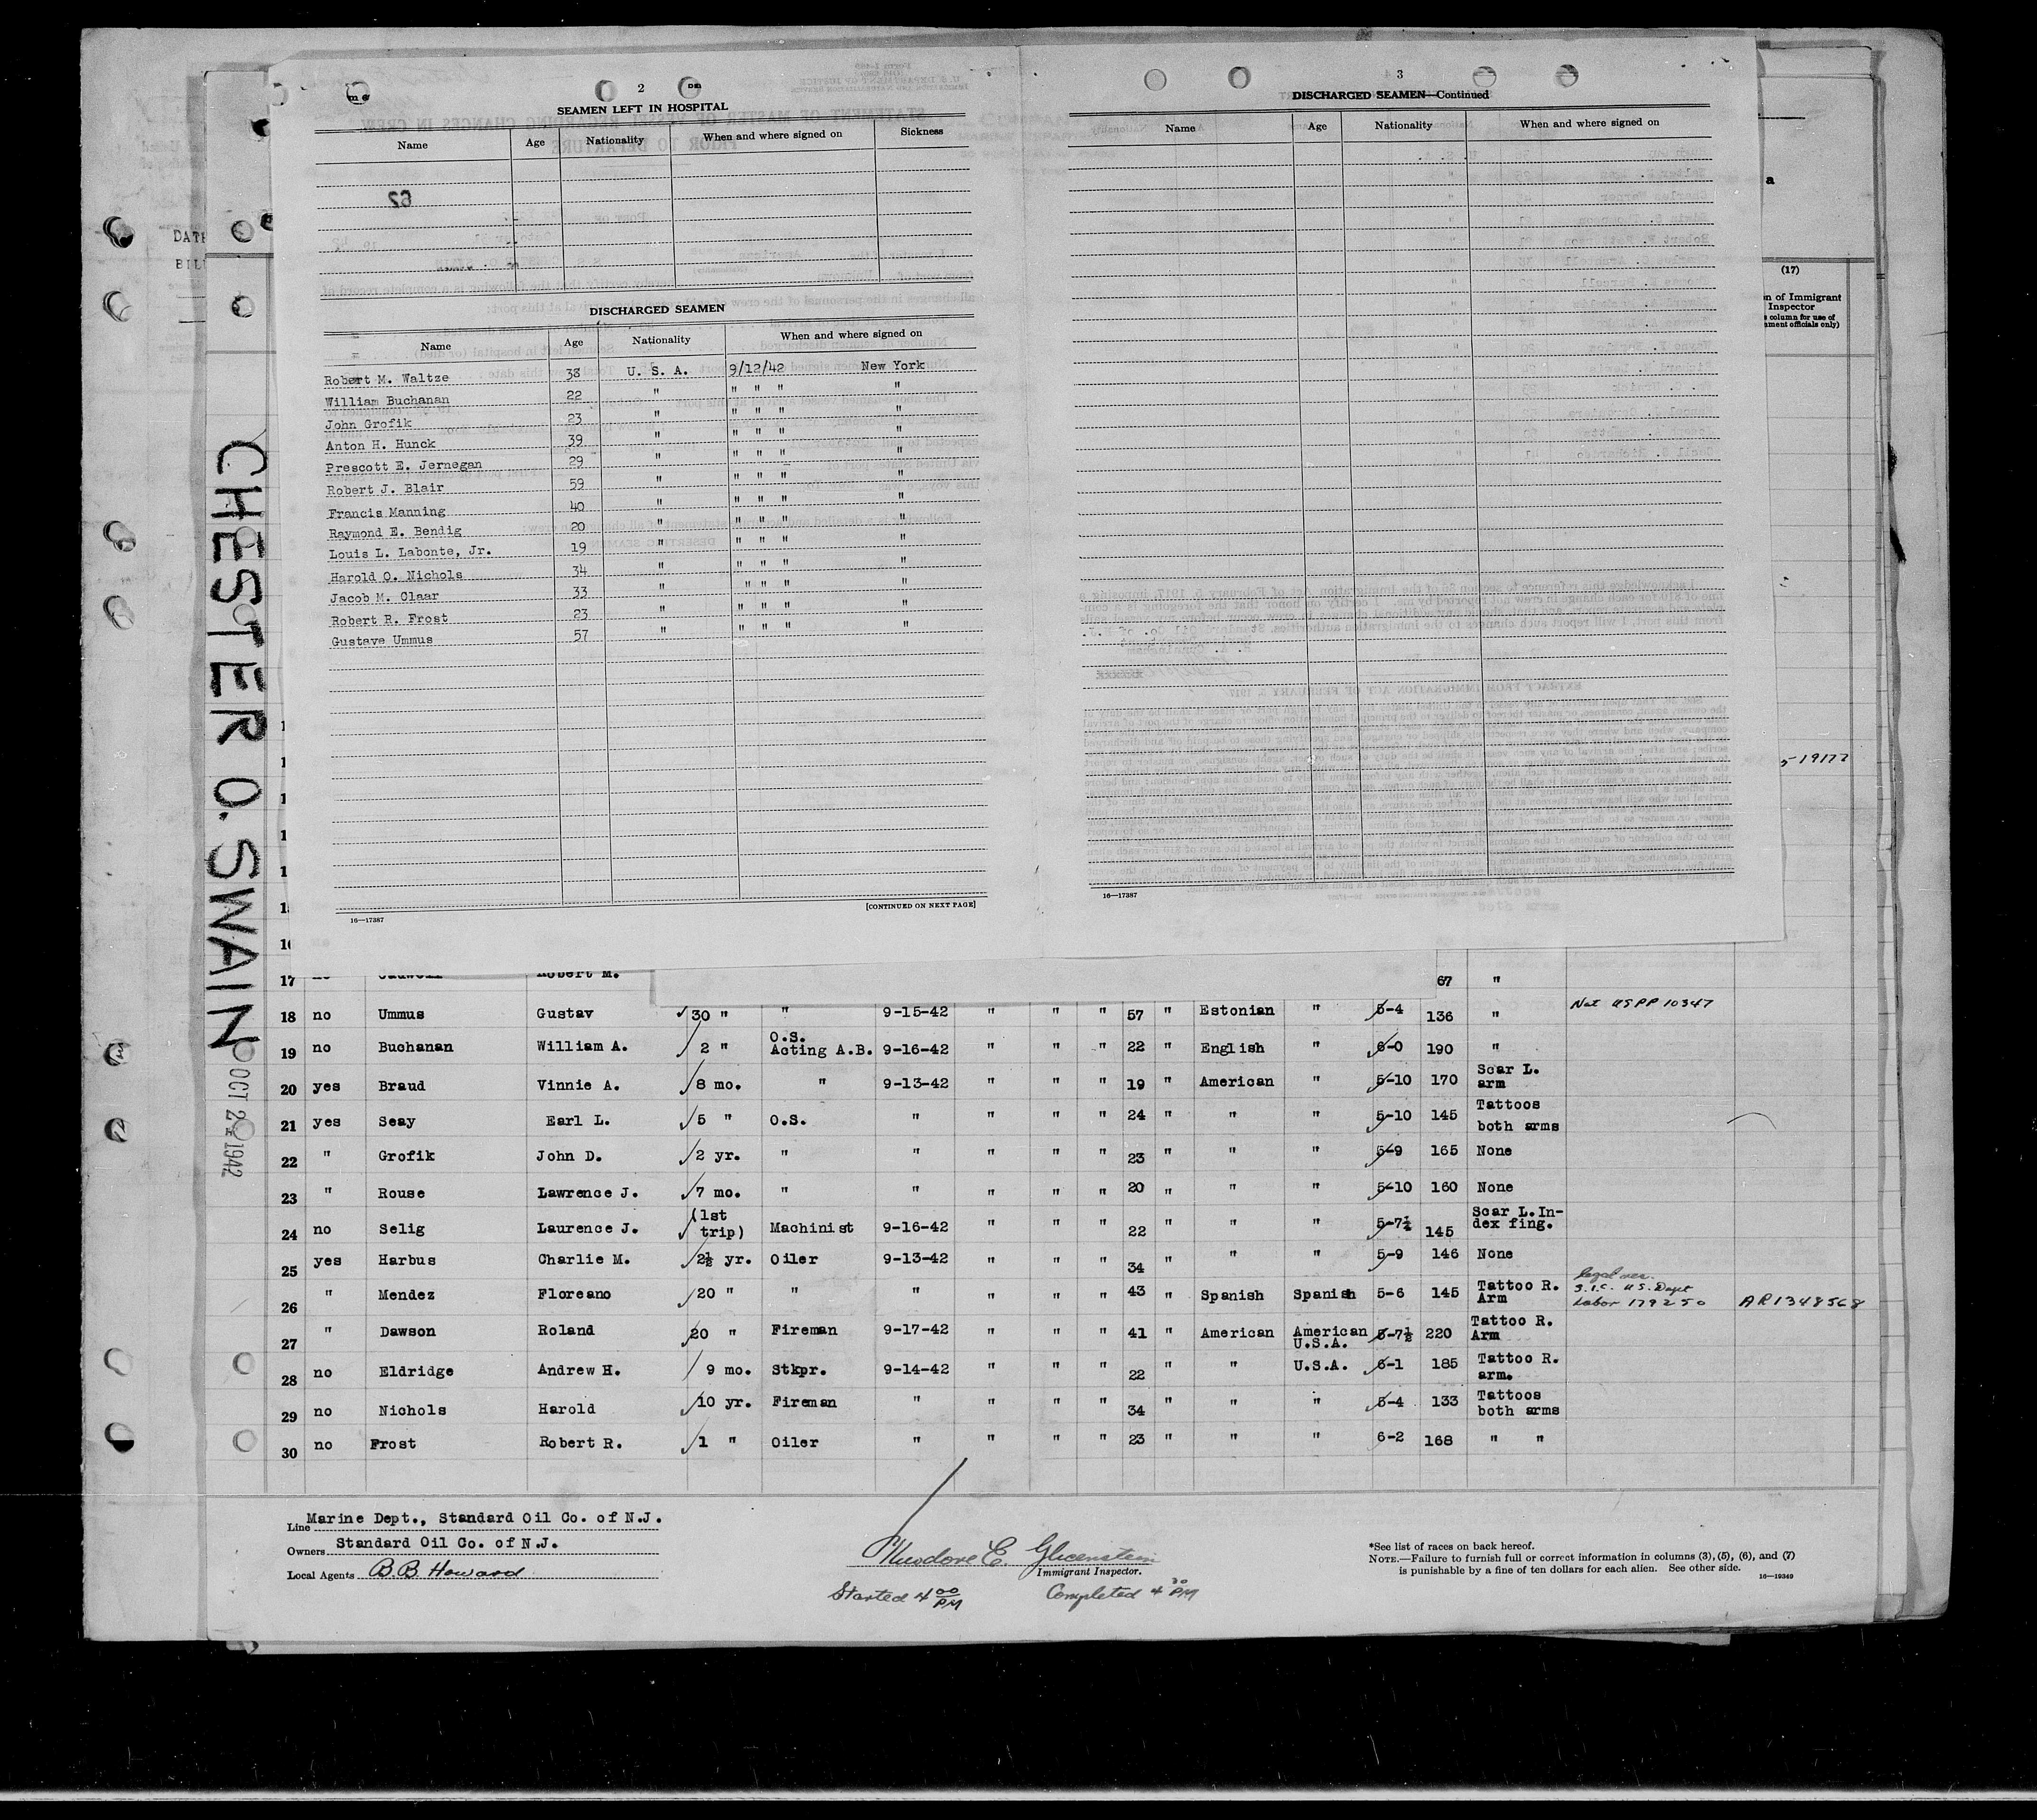 2
SEAMEN LEFT IN HOSPITAL
Name Age Nationality When and where signed on Sickness
DISCHARGED SEAMEN
Name Age Nationality When and where signed on
Robert M. Waltze 38 U. S. A. 9/12/42 New York
William Buchanan 22 " " " " "
John Grofik 23 " " " " "
Anton H. Hunck 39 " " " " "
Prescott E. Jernegan 29 " " " " "
Robert J. Blair 59 " " " " "
Francis Manning 40 " " " " "
Raymond E. Bendig 20 " " " " "
Louis L. Labonte, Jr. 19 " " " " "
Harold O. Nichols 34 " " " " "
Jacob M. Claar 33 " " " " "
Robert R. Frost 23 " " " " "
Gustave Ummus 57 " " " " "
16—17387
[CONTINUED ON NEXT PAGE]
3
DISCHARGED SEAMEN—Continued
Name Age Nationality When and where signed on
16—17387
DATE
(17)
of Immigrant
Inspector
column for use of
officials only)
5-19177
CHESTER O. SWAIN
OCT 22 1942
17 Robert M. 67 "
18 no Ummus Gustav 30 " " 9-15-42 " " " 57 " Estonian " 5-4 136 " Nat USPP 10347
19 no Buchanan William A. 2 " O.S. Acting A.B. 9-16-42 " " " 22 " English " 6-0 190 "
20 yes Braud Vinnie A. 8 mo. " 9-13-42 " " " 19 " American " 5-10 170 Scar L. arm
21 yes Seay Earl L. 5 " O.S. " " " " 24 " " " 5-10 145 Tattoos both arms
22 " Grofik John D. 2 yr. " " " " " 23 " " " 5-9 165 None
23 " Rouse Lawrence J. 7 mo. " " " " " 20 " " " 5-10 160 None
24 no Selig Laurence J. (1st trip) Machinist 9-16-42 " " " 22 " " " 5-7½ 145 Scar L. Index fing.
25 yes Harbus Charlie M. 2½ yr. Oiler 9-13-42 " " " 34 " " 5-9 146 None
26 " Mendez Floreano 20 " " " " " " 43 " Spanish Spanish 5-6 145 Tattoo R. Arm legal res. S.I.C. U.S. Dept Labor 179250 AR1348568
27 " Dawson Roland 20 " Fireman 9-17-42 " " " 41 " American American U.S.A. 5-7½ 220 Tattoo R. Arm
28 no Eldridge Andrew H. 9 mo. Stkpr. 9-14-42 " " " 22 " " U.S.A. 6-1 185 Tattoo R. arm.
29 no Nichols Harold 10 yr. Fireman " " " " 34 " " " 5-4 133 Tattoos both arms
30 no Frost Robert R. 1 " Oiler " " " " 23 " " " 6-2 168 " "
Line Marine Dept., Standard Oil Co. of N.J.
Owners Standard Oil Co. of N.J.
Local Agents B.B. Howard
Theodore E. Glicenstein
Immigrant Inspector.
Started 4 00 PM Completed 4 30 PM
*See list of races on back hereof.
NOTE.—Failure to furnish full or correct information in columns (3), (5), (6), and (7)
is punishable by a fine of ten dollars for each alien. See other side.
16—19349